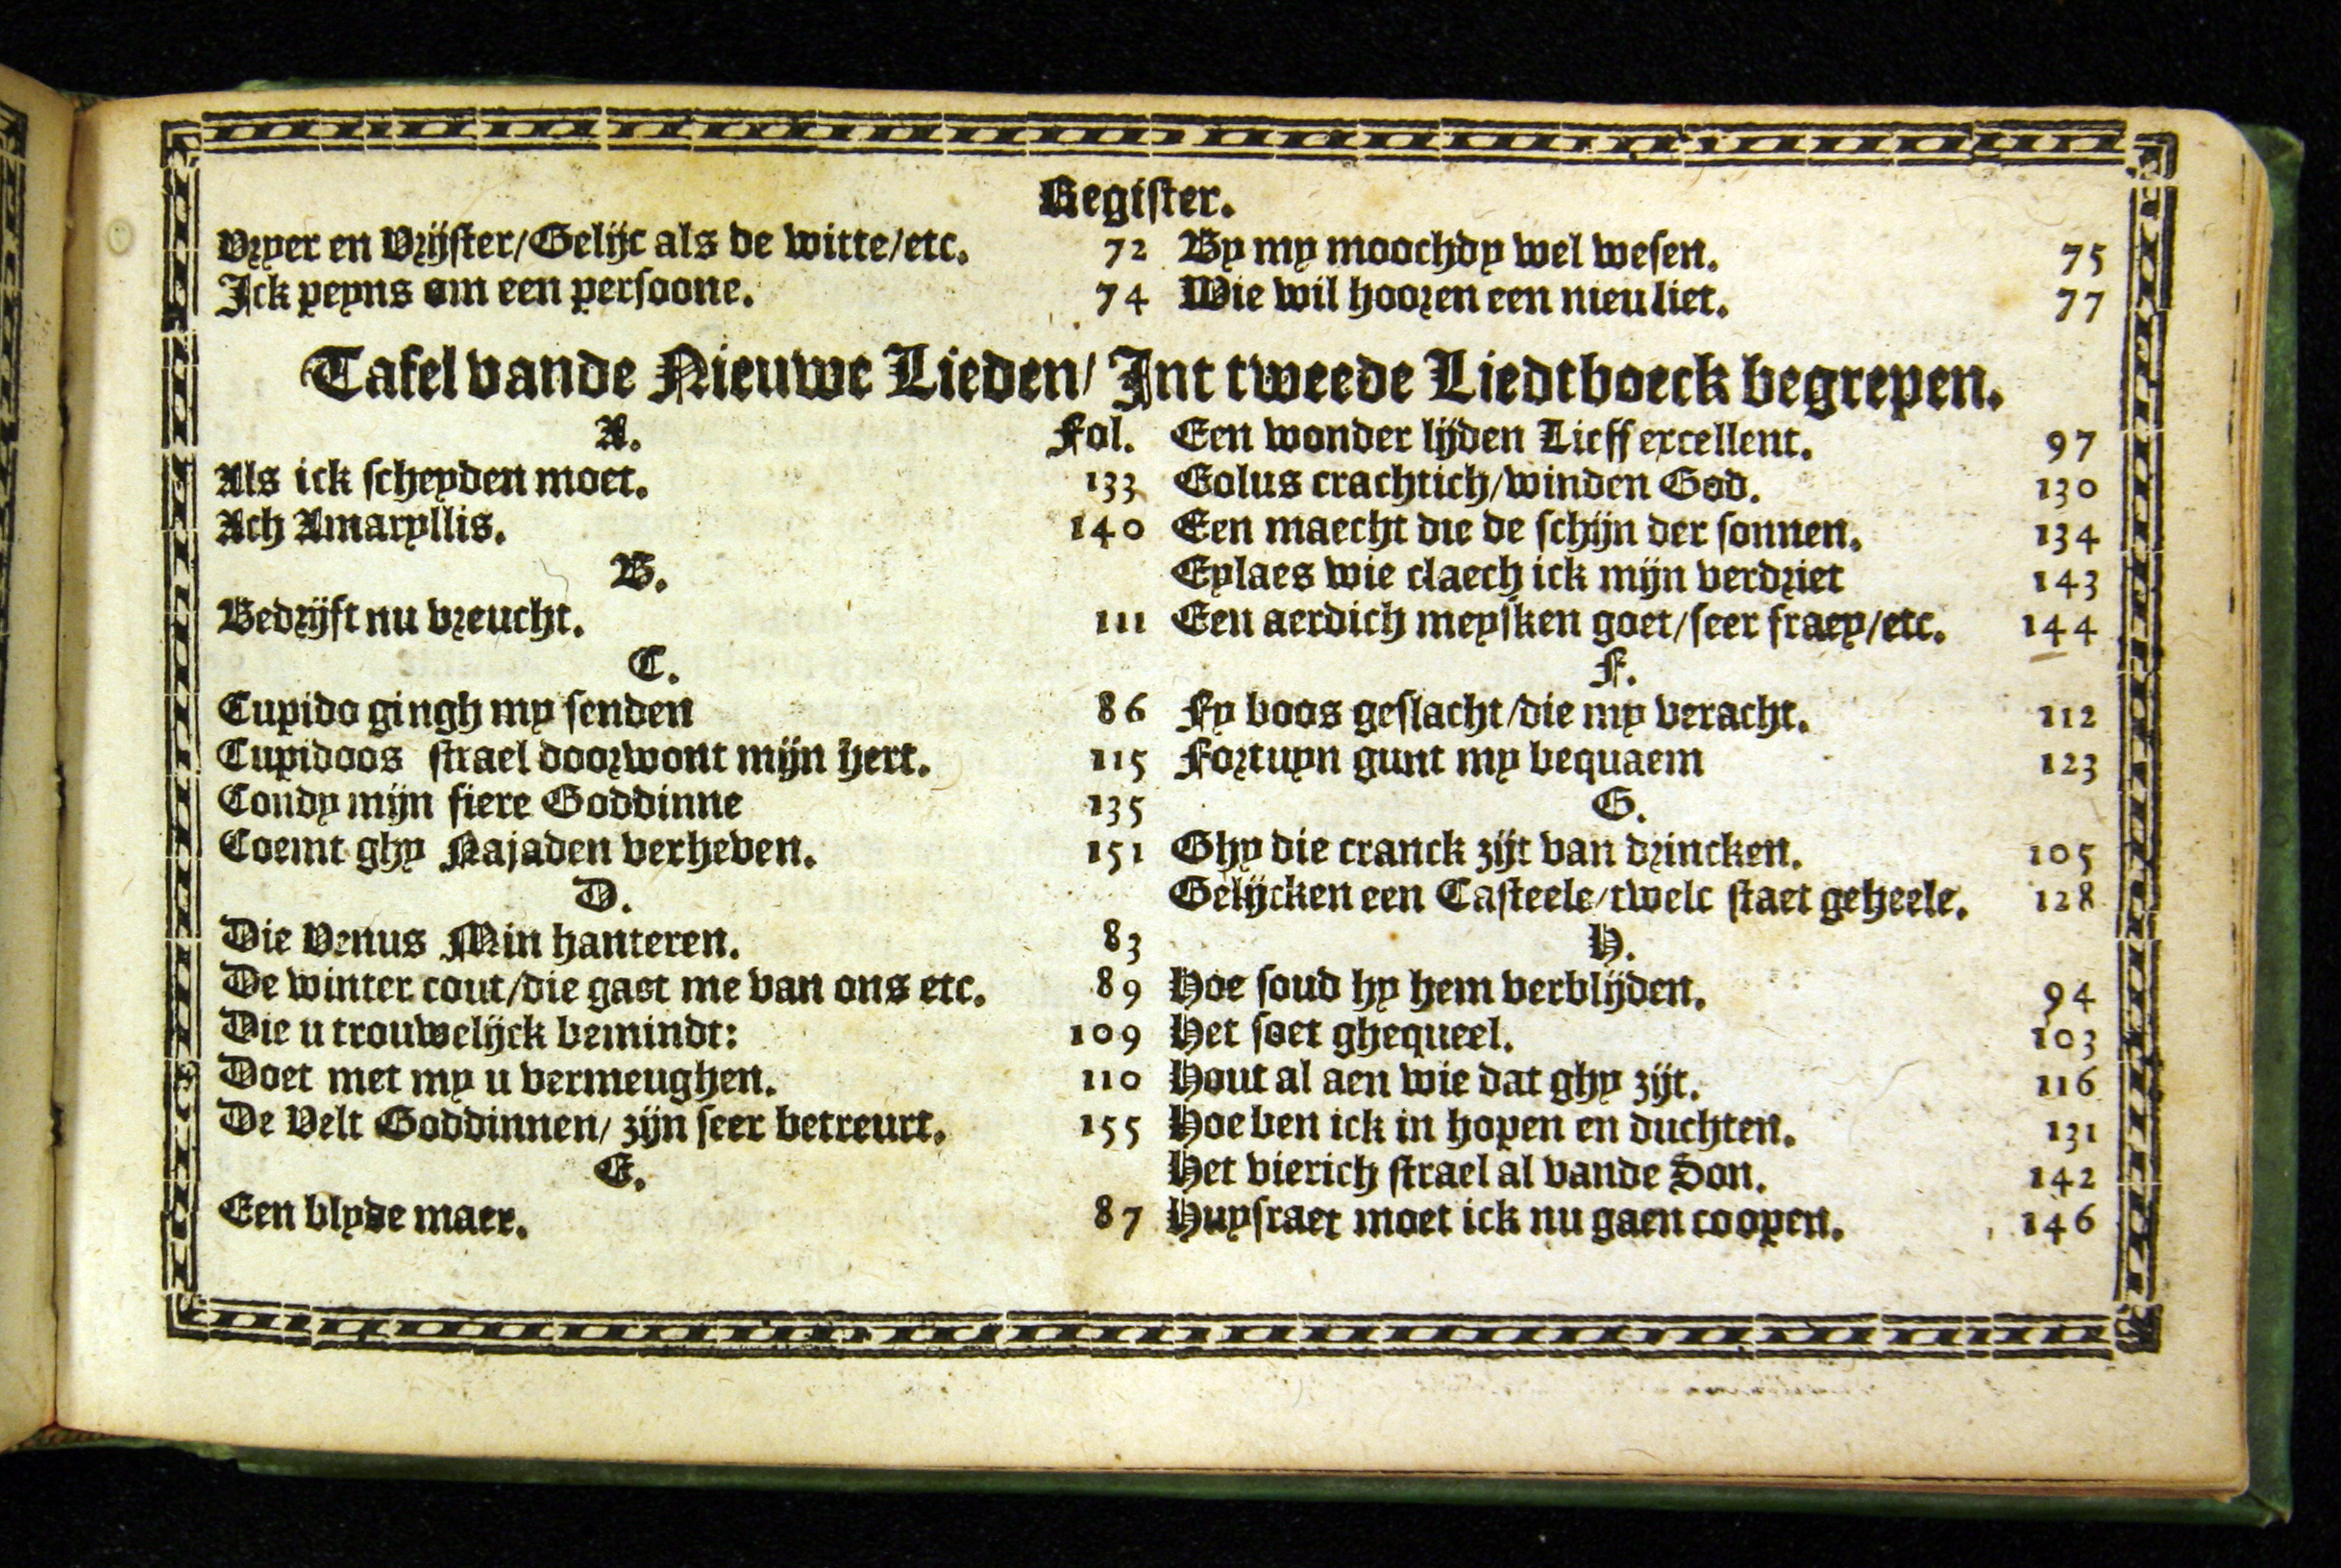 Register.
Vryer en Vrijster/Gelijc als de witte/etc. 72
Ick peyns om een persoone. 74
By my moochdy wel wesen. 75
Wie wil hooren een nieu liet. 77
Tafel vande Nieuwe Lieden/ Int tweede Liedtboeck begrepen.
A. Fol.
Als ick scheyden moet. 133
Ach Amaryllis. 140
B.
Bedrijft nu vreucht. 111
C.
Cupido gingh my senden 86
Cupidoos strael doorwont mijn hert. 115
Condy mijn fiere Goddinne 135
Coemt ghy Najaden verheven. 151
D.
Die Venus Min hanteren. 83
De winter cout/die gaet me van ons etc. 89
Die u trouwelijck bemindt: 109
Doet met my u vermeughen. 110
De Velt Goddinnen/ zijn seer betreurt. 155
E.
Een blyde maer. 87
Een wonder lijden Lieff excellent. 97
Eolus crachtich/winden God. 130
Een maecht die de schijn der sonnen. 134
Eylaes wie claech ick mijn verdriet 143
Een aerdich meysken goet/seer fraey/etc. 144
F.
Fy boos geslacht/die my veracht. 112
Fortuyn gunt my bequaem 123
G.
Ghy die cranck zijt van drincken. 105
Gelijcken een Casteele/twelc staet geheele. 128
H.
Hoe soud hy hem verblijden. 94
Het soet ghequeel. 103
Hout al aen wie dat ghy zijt. 116
Hoe ben ick in hopen en duchten. 131
Het vierich strael al vande Son. 142
Huysraet moet ick nu gaen coopen. 146